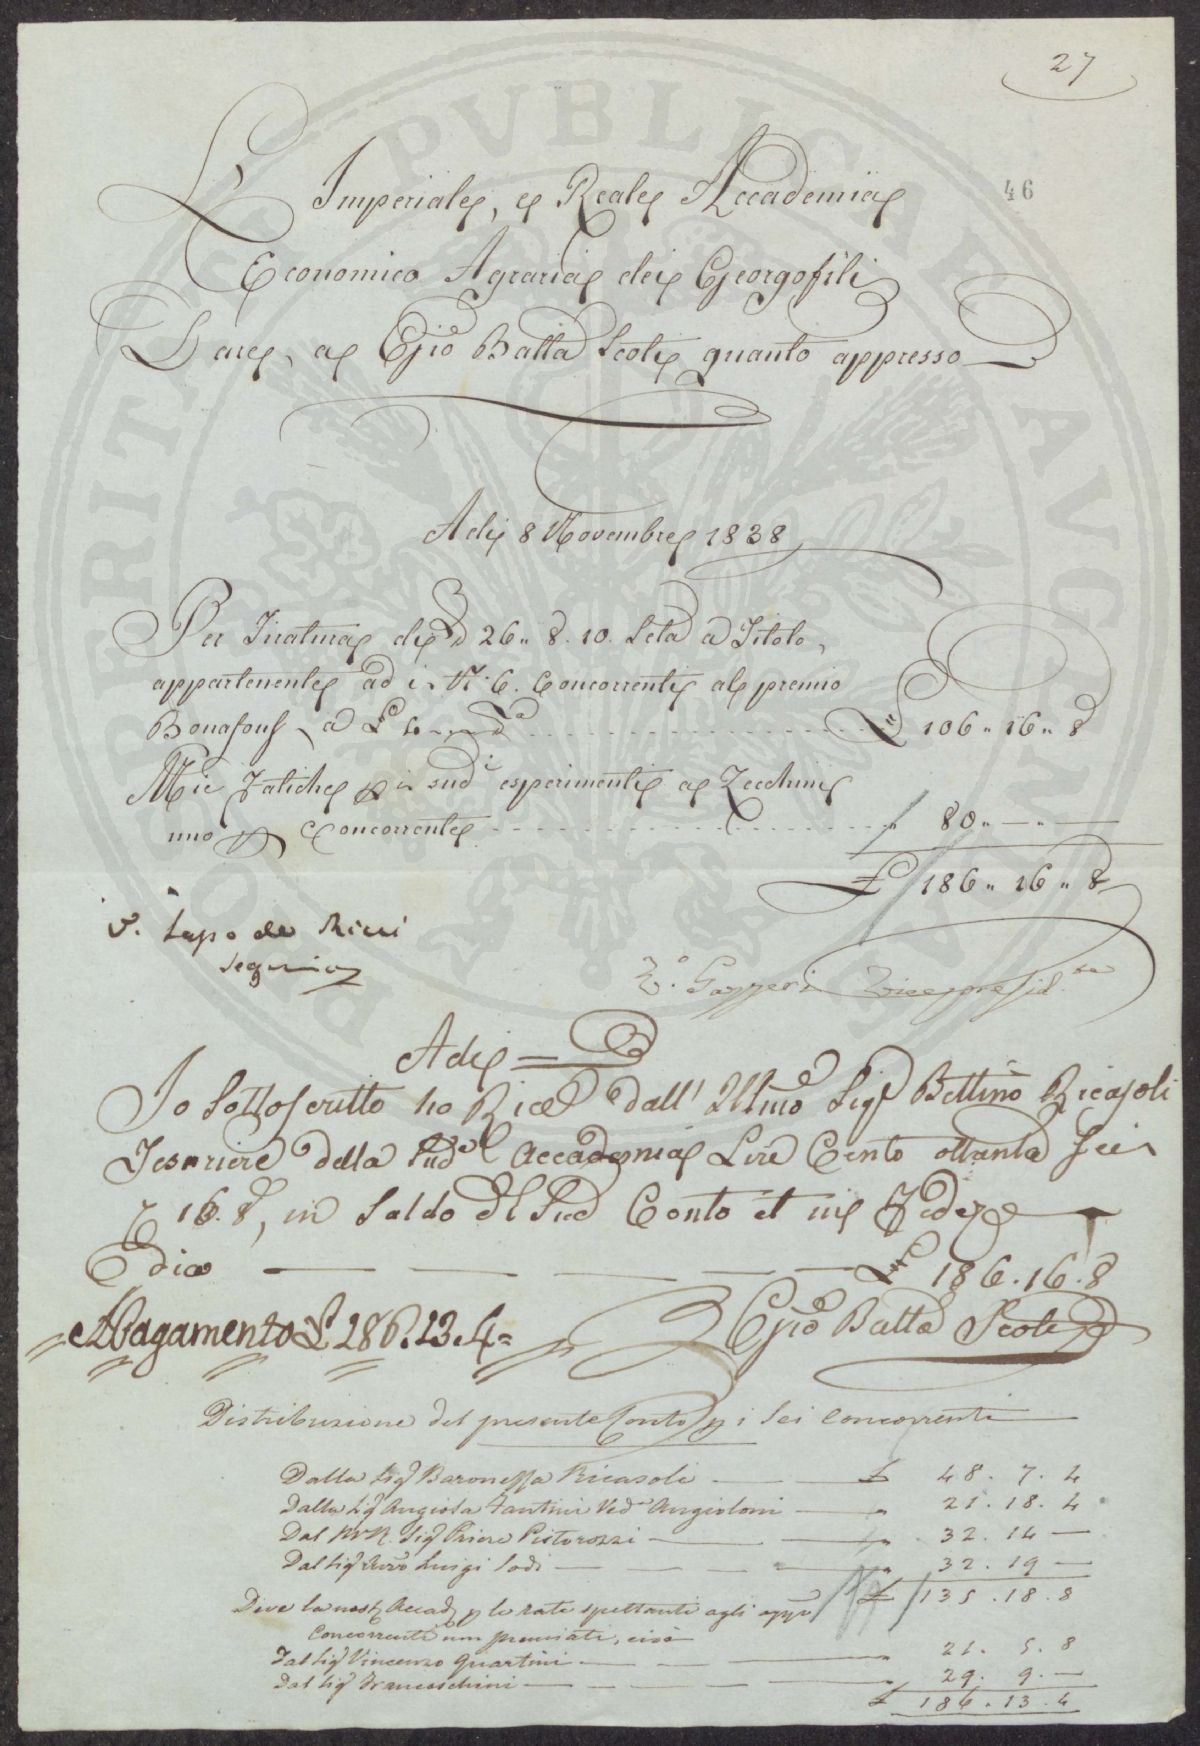 27
46
L' Imperiale, e Reale Accademia
Economico Agraria dei Georgofili
Dare, a Gio Batta Scoti quanto appresso
Adi 8 Novembre 1838
Per Tiratura di 26 „ 8. 10. Seta a Titolo,
appartenente ad i N. 6. Concorrenti al premio
Bonafous, a £ 106 „ 16 „ 8
Mie Fatiche sud.i esperimenti a Zecchini
uno Concorrente „ 80 „ — „ —
£ 186 „ 16 „ 8
V. Lapo de Ricci
Segrio
V.o Gazzeri Vicepresid.te
Adi =
Io Sottoscritto ho Rice dall' Illmo Sigr Bettino Ricasoli
Tesoriere della Sud.a Accademia Lire Cento ottanta Sei
16. 8, in Saldo del Sud Conto et in Fede
dico £ 186. 16. 8
Pagamento £ 186. 13. 4 =
Gio Batta Scoti
Distribuzione del presente Conto p i Sei Concorrenti
Dalla Sigra Baronessa Ricasoli £ 48. 7. 4
Dalla Sigra Angiola Fantini Ved.a Angioloni „ 21. 18. 4
Dal M.R. Sigr Priore Pistorozzi „ 32. 14 —
Dal Sigr Luigi Sodi „ 32. 19 —
£ 135. 18. 8
Deve la nostra Accad p le rate spettanti agli
Concorrenti non premiati, cioè
Dal Sigr Vincenzo Guartini „ 21. 5. 8
Dal Sigr Franceschini „ 29. 9. —
£ 186. 13. 4
PROSPERITATI PVBLICAE AVGENDAE